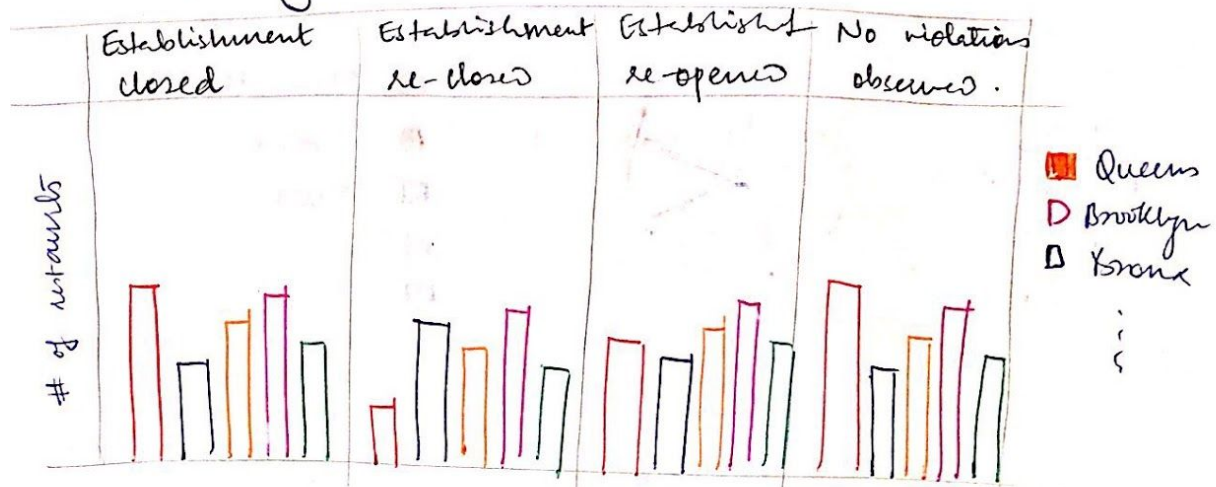 Establishment
closed
Establishment
re-closed
Establisht
re-opened
No violations
observed.
# of restaurants
Queens
Brooklyn
Bronx